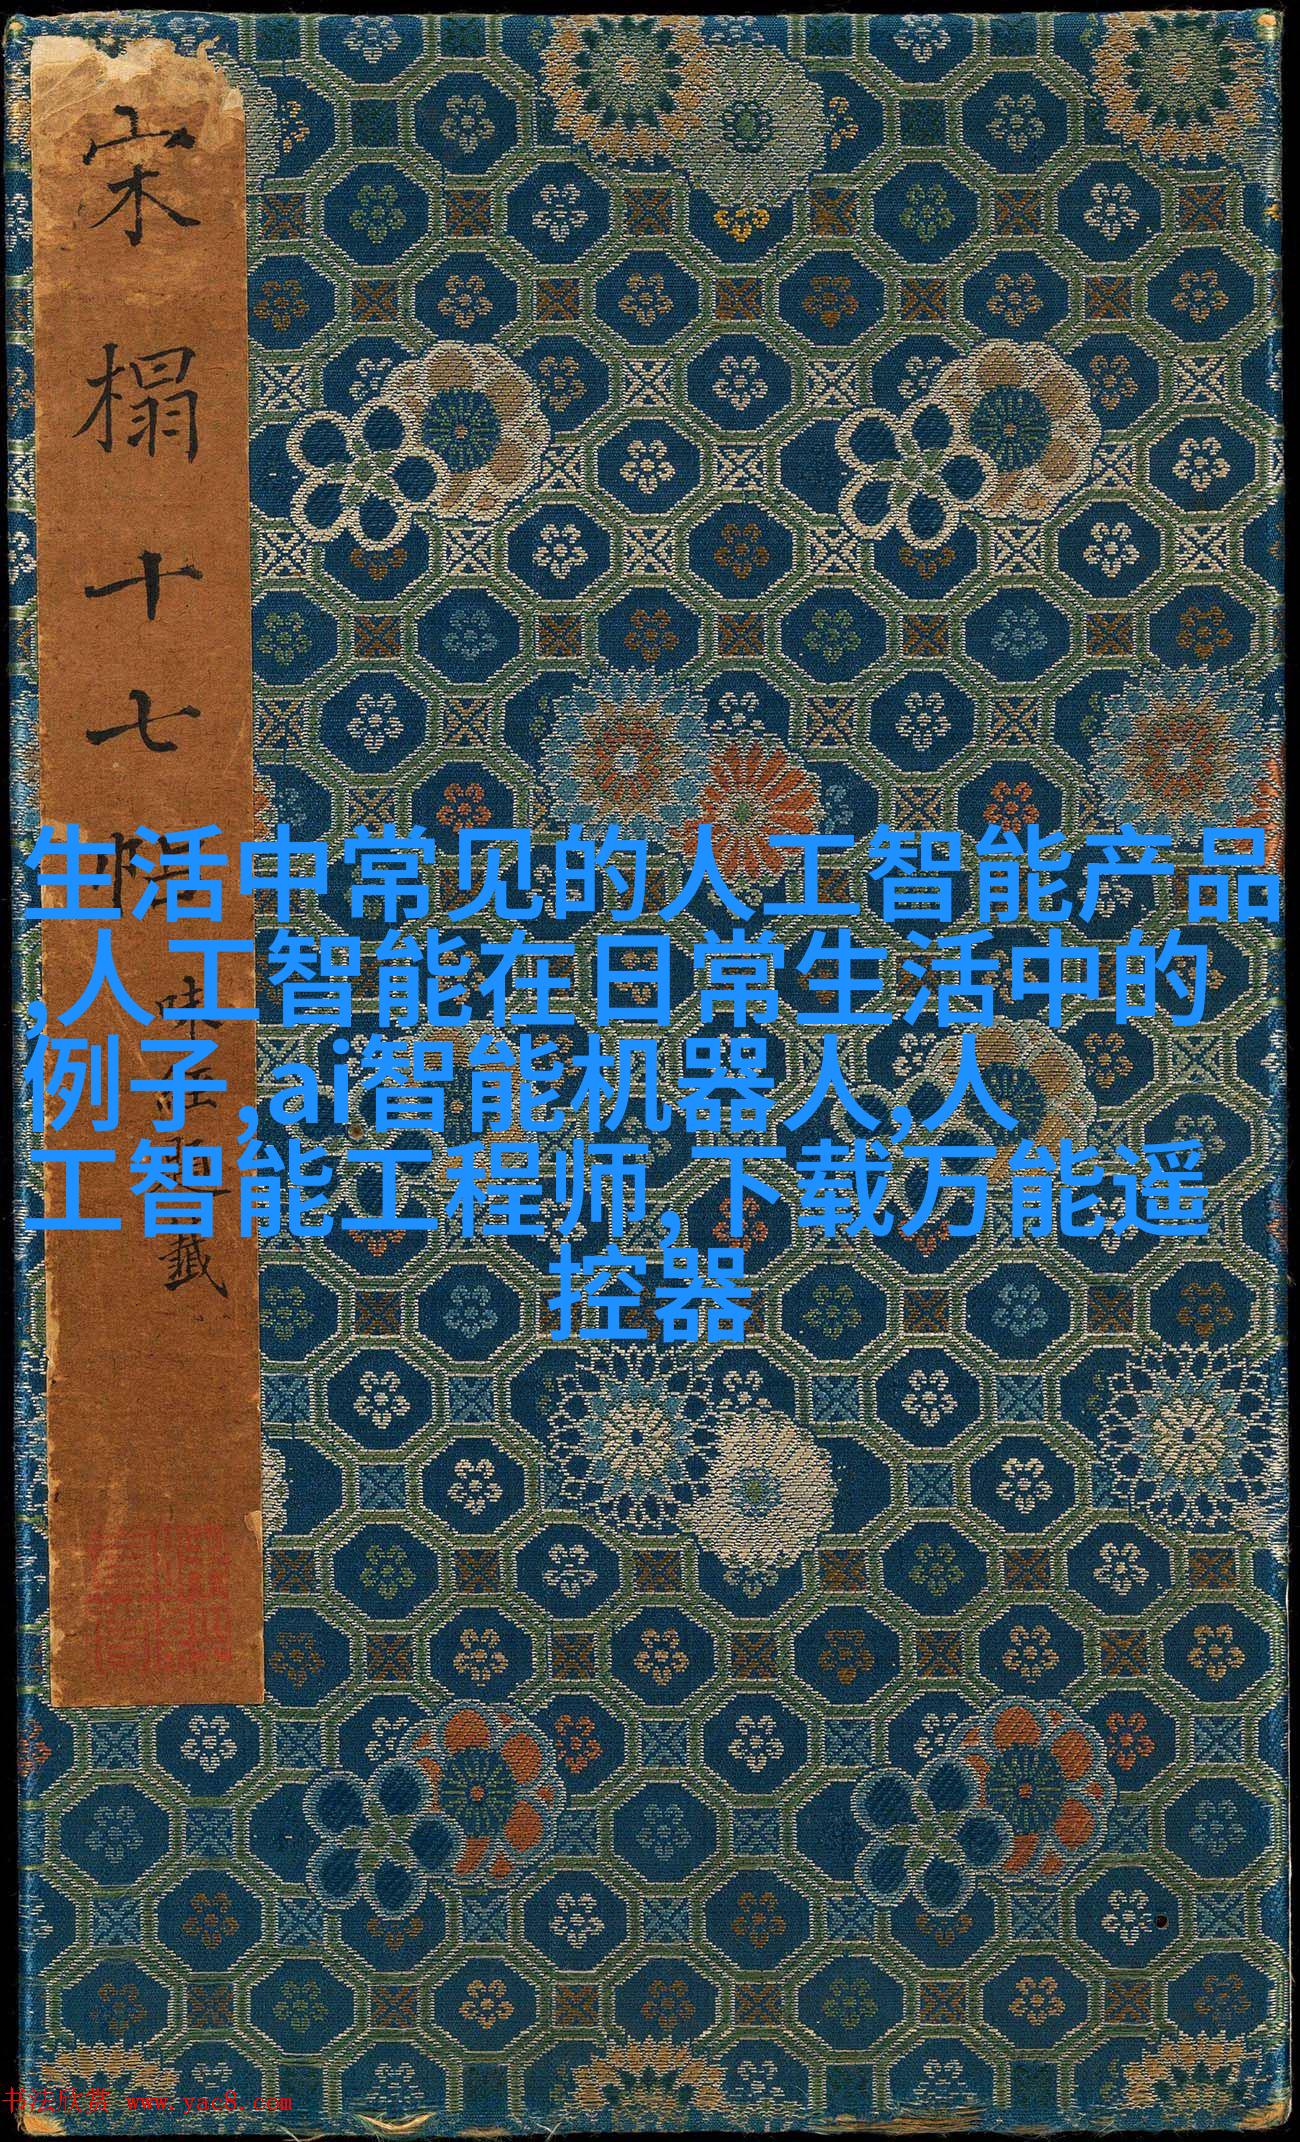 宋榻十七帖
味经书屋藏
生活中常见的人工智能产品
,人工智能在日常生活中的
例子,ai智能机器人,人
工智能工程师,下载万能遥
控器
书法欣赏 www.yac8.com